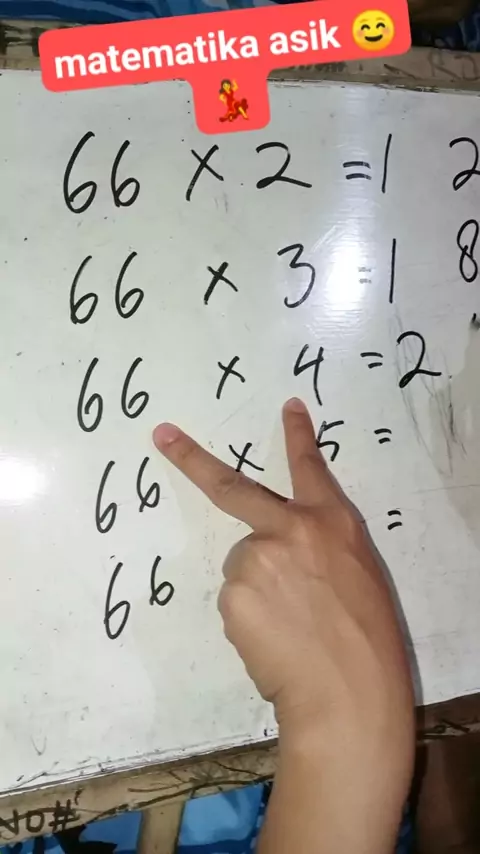 matematika asik ☺️
💃
66 × 2 = 1 2
66 × 3 = 1 8
66 × 4 = 2
66 × 5 =
66 =
NO#